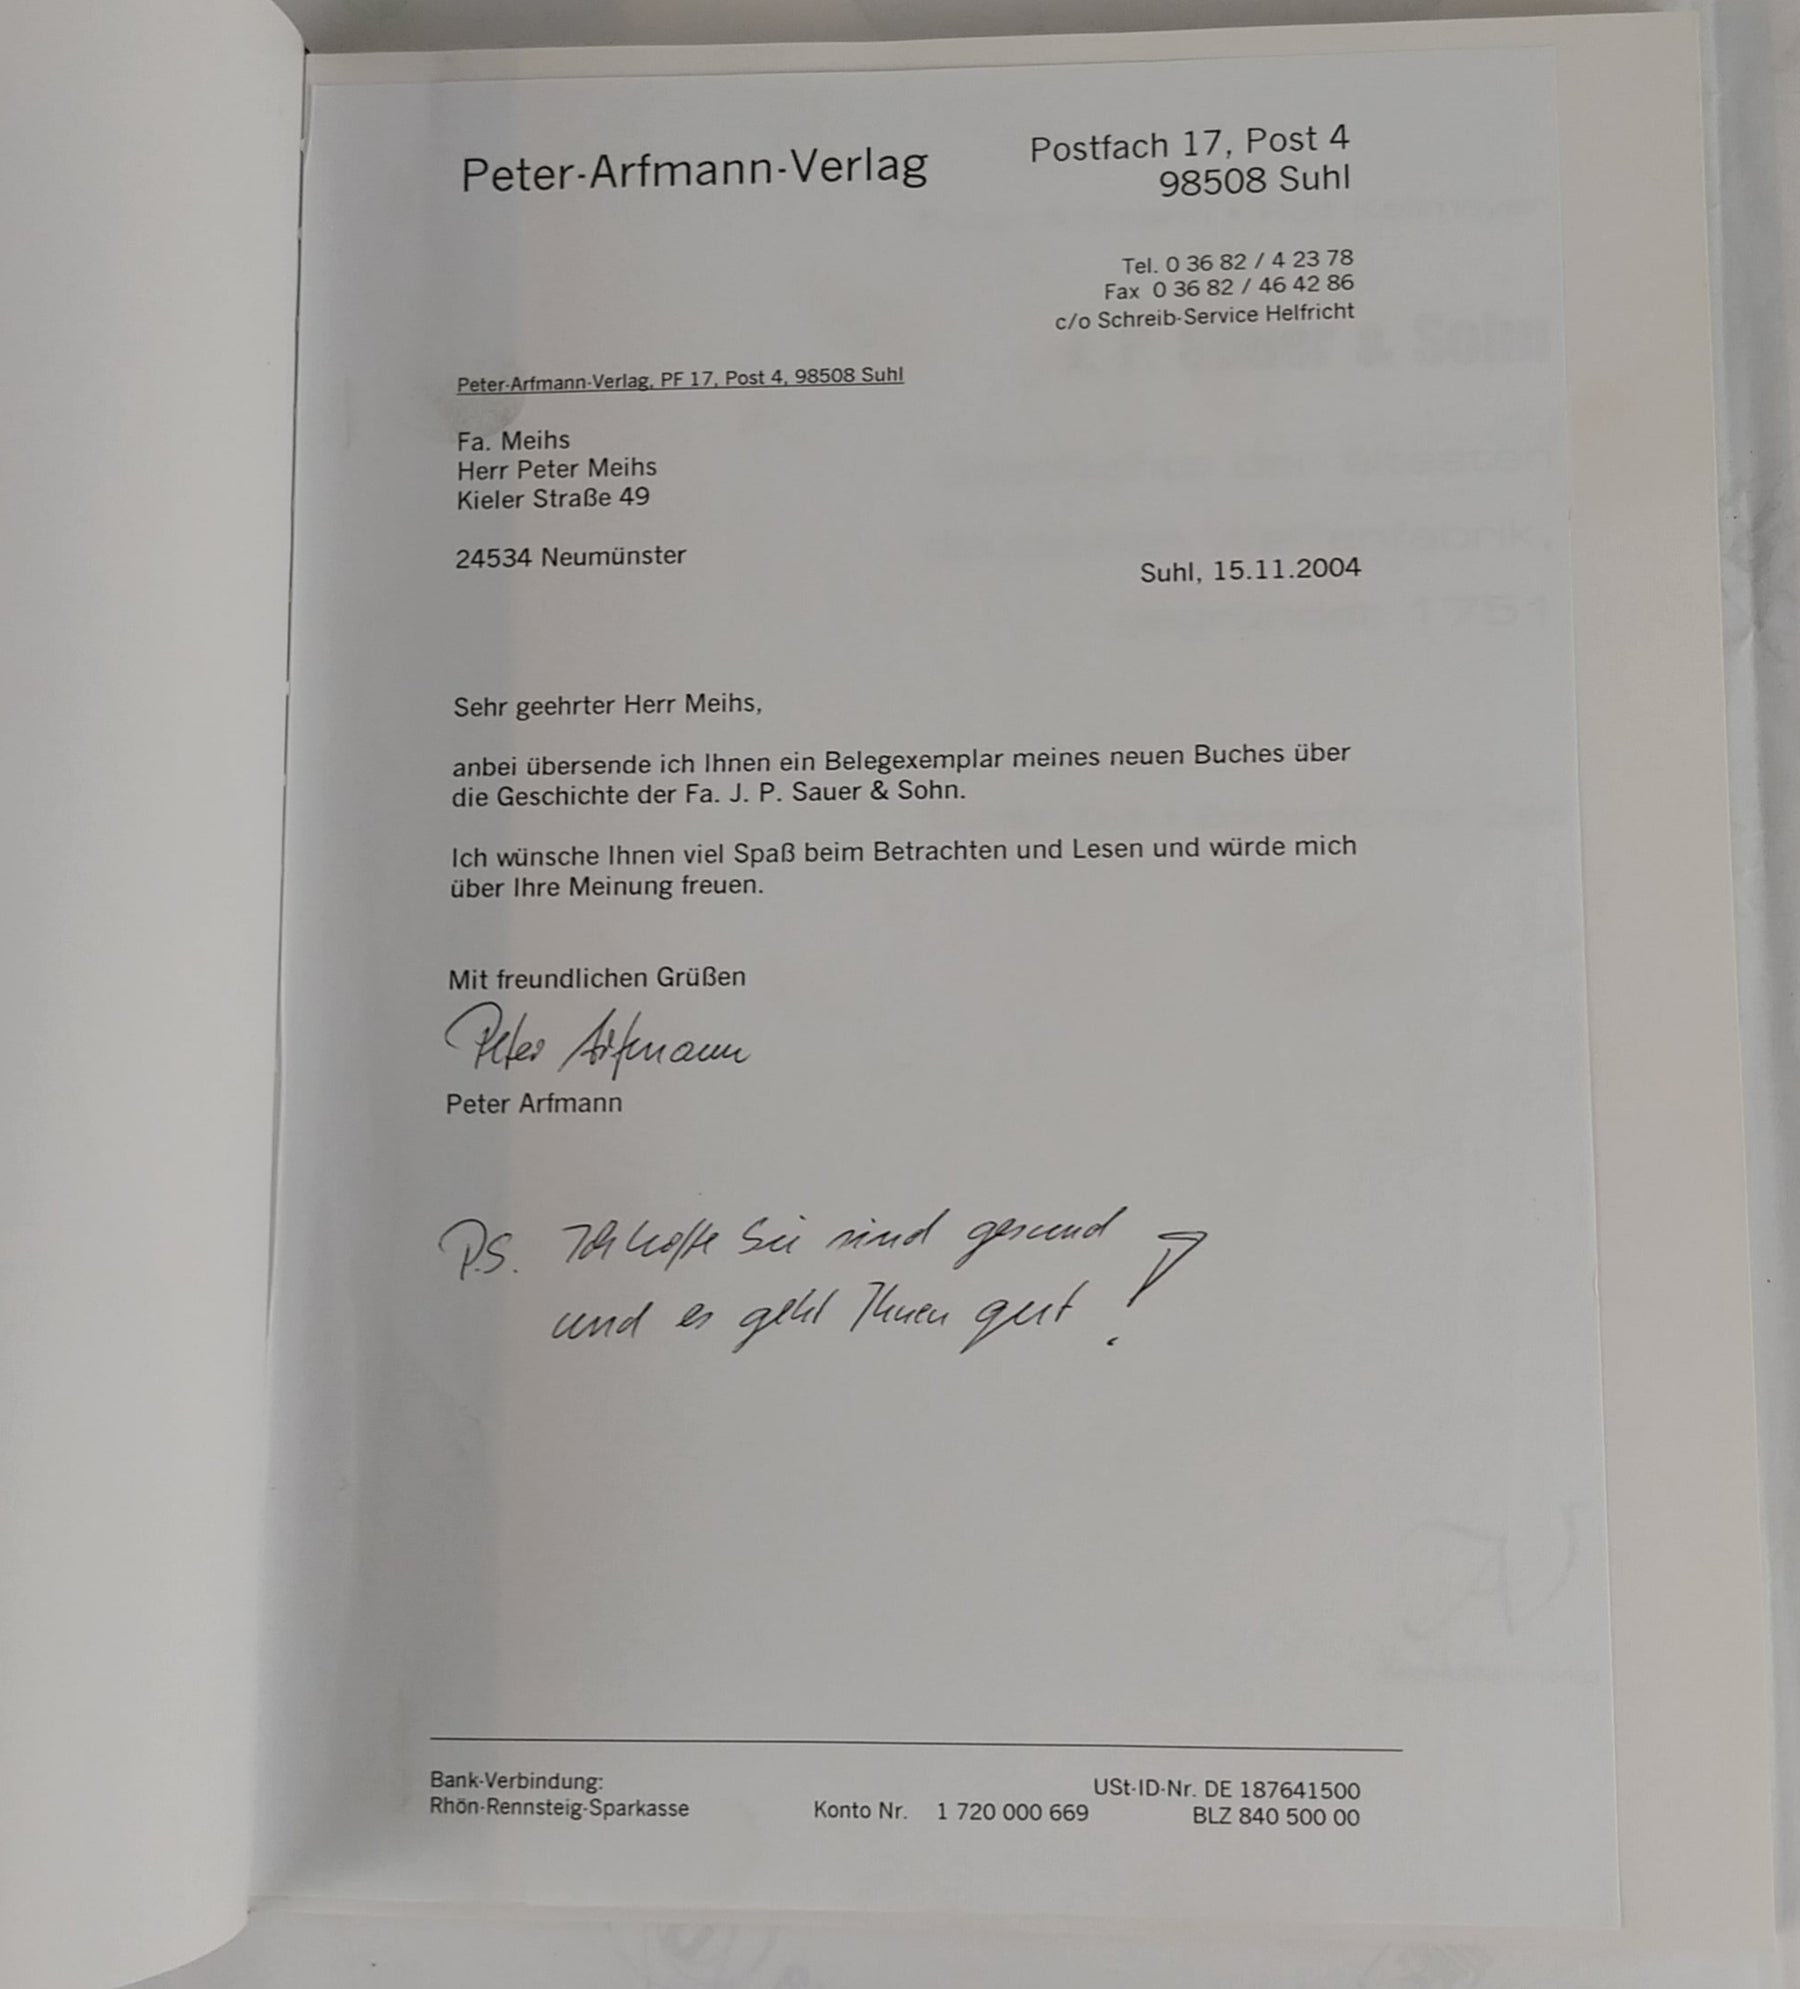 Peter-Arfmann-Verlag
Postfach 17, Post 4
98508 Suhl
Tel. 0 36 82 / 4 23 78
Fax 0 36 82 / 46 42 86
c/o Schreib-Service Helfricht
Peter-Arfmann-Verlag, PF 17, Post 4, 98508 Suhl
Fa. Meihs
Herr Peter Meihs
Kieler Straße 49
24534 Neumünster
Suhl, 15.11.2004
Sehr geehrter Herr Meihs,
anbei übersende ich Ihnen ein Belegexemplar meines neuen Buches über
die Geschichte der Fa. J. P. Sauer & Sohn.
Ich wünsche Ihnen viel Spaß beim Betrachten und Lesen und würde mich
über Ihre Meinung freuen.
Mit freundlichen Grüßen
Peter Arfmann
Peter Arfmann
P.S. Ich hoffe Sie sind gesund
und es geht Ihnen gut!
Bank-Verbindung:
Rhön-Rennsteig-Sparkasse
Konto Nr. 1 720 000 669
USt-ID-Nr. DE 187641500
BLZ 840 500 00